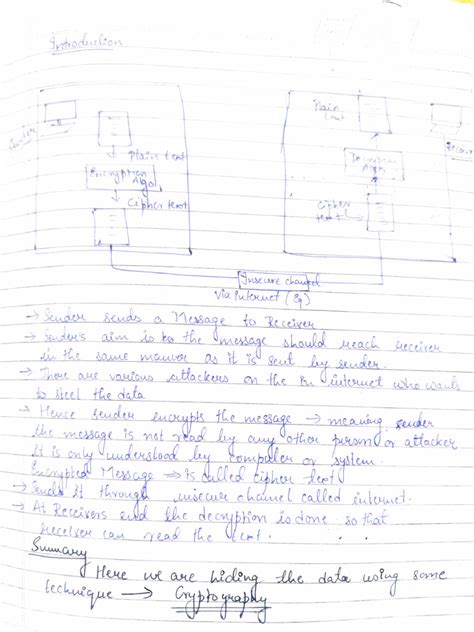 Introduction
Sender
Plain text
Encryption
Algo
Cipher text
Plain
text
Decryption
Algo
Cipher
text
Insecure channel
Via internet (Eg)
→ Sender sends a Message to Receiver
→ Sender's aim is to the message should reach receiver
in the same manner as it is sent by sender.
→ There are various attackers on the internet who wants
to steel the data
→ Hence sender encrypts the message → meaning sender
the message is not read by any other person or attacker
It is only understood by computer or system.
Encrypted Message ⇒ is called cipher text
→ Sends it through insecure channel called internet.
→ At Receivers end the decryption is done so that
receiver can read the text.
Summary
Here we are hiding the data using some
technique → Cryptography